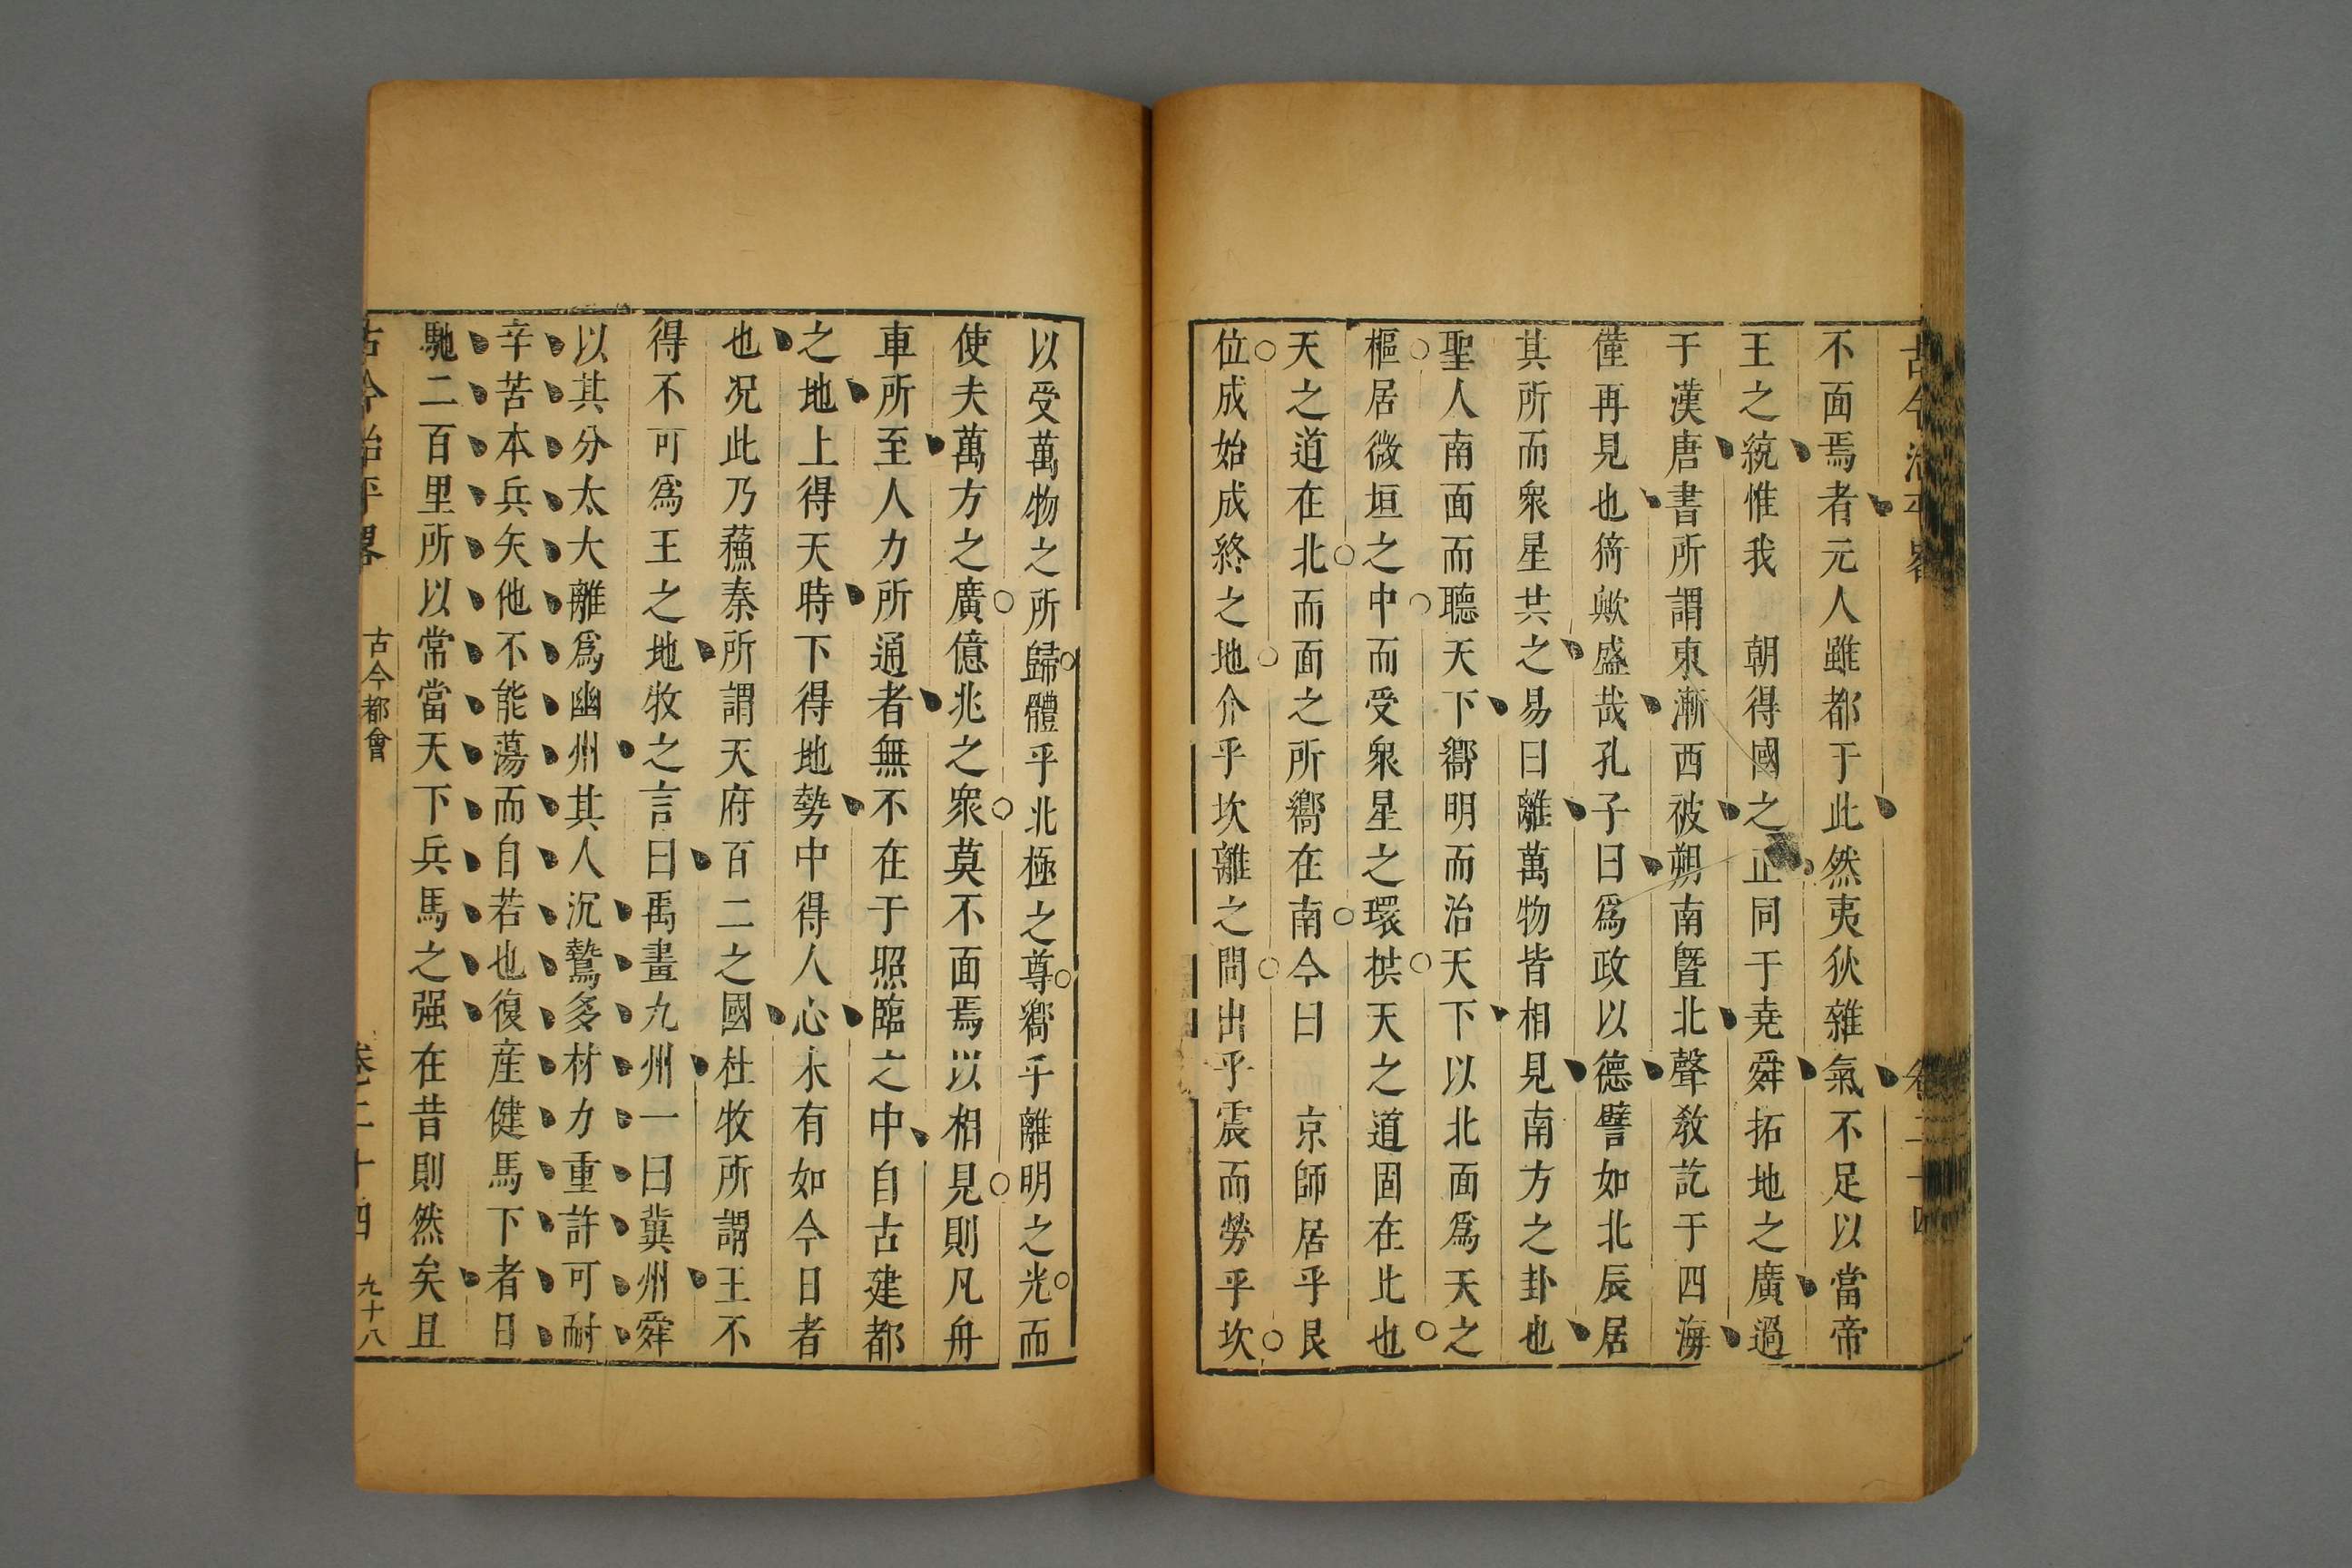 古今治平畧 卷二十四
不面焉者元人雖都于此然夷狄雜氣不足以當帝
王之統惟我 朝得國之正同于堯舜拓地之廣過
于漢唐書所謂東漸西被朔南曁北聲敎訖于四海
僅再見也猗歟盛哉孔子曰爲政以德譬如北辰居
其所而衆星共之易曰離萬物皆相見南方之卦也
聖人南面而聽天下嚮明而治天下以北面爲天之
樞居微垣之中而受衆星之環栱天之道固在北也
天之道在北而面之所嚮在南今曰 京師居乎艮
位成始成終之地介乎坎離之間出乎震而勞乎坎
以受萬物之所歸體乎北極之尊嚮乎離明之光而
使夫萬方之廣億兆之衆莫不面焉以相見則凡舟
車所至人力所通者無不在于照臨之中自古建都
之地上得天時下得地勢中得人心未有如今日者
也况此乃蘓秦所謂天府百二之國杜牧所謂王不
得不可爲王之地牧之言曰禹畫九州一曰冀州舜
以其分太大離爲幽州其人沉鷙多材力重許可耐
辛苦本兵矢他不能蕩而自若也復産健馬下者日
馳二百里所以常當天下兵馬之强在昔則然矣且
古今治平畧 古今都會 卷二十四 九十八